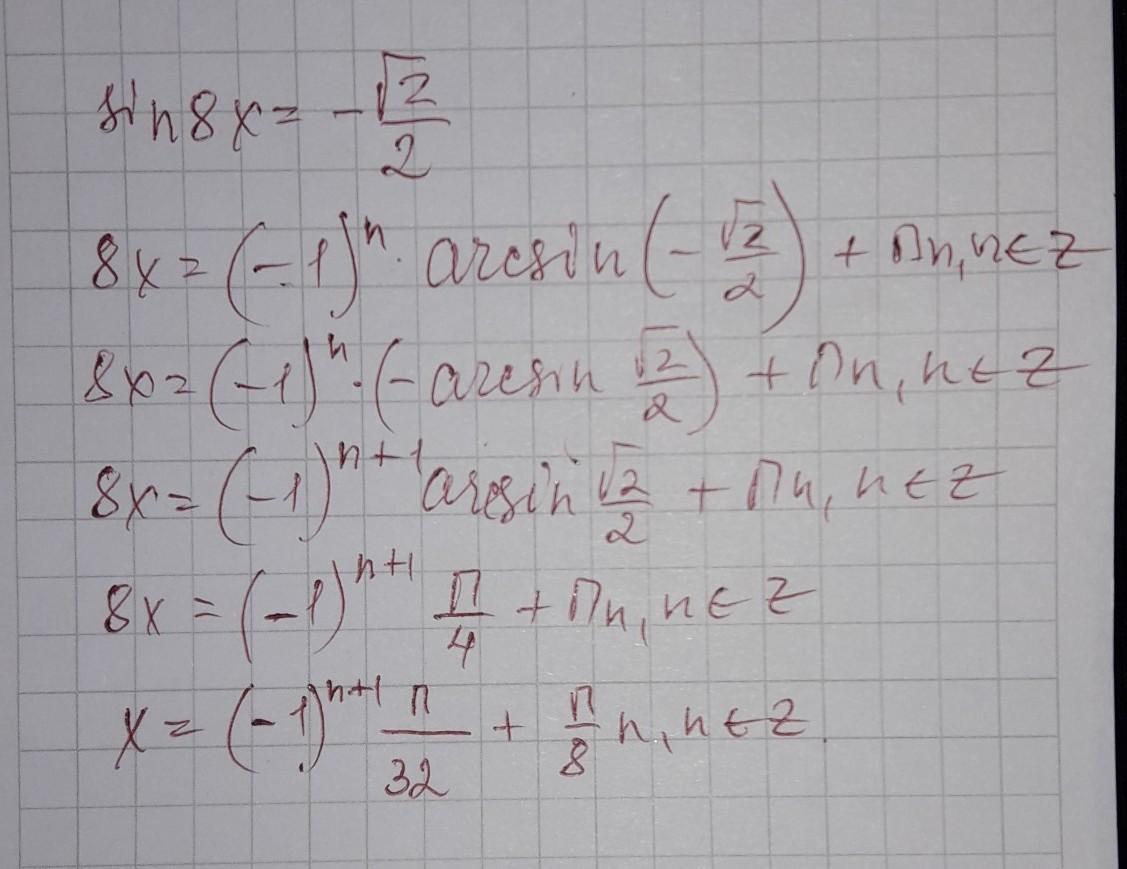 sin 8x = -√2/2
8x = (-1)ⁿ · arcsin(-√2/2) + πn, n ∈ Z
8x = (-1)ⁿ · (-arcsin √2/2) + πn, n ∈ Z
8x = (-1)ⁿ⁺¹ arcsin √2/2 + πn, n ∈ Z
8x = (-1)ⁿ⁺¹ π/4 + πn, n ∈ Z
x = (-1)ⁿ⁺¹ π/32 + π/8 n, n ∈ Z.